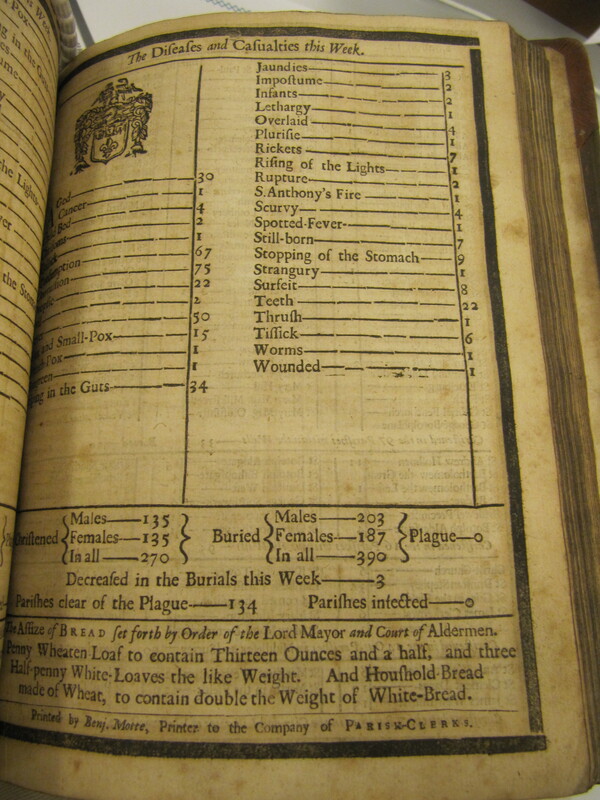 The Diſeaſes and Caſualties this Week.
30
God 1
Cancer 4
Bed 2
1
67
75
22
2
50
and Small-Pox 15
Pox 1
1
in the Guts 34
Jaundies 3
Impoſtume 2
Infants 2
Lethargy 1
Overlaid 4
Pluriſie 1
Rickets 7
Riſing of the Lights 1
Rupture 2
S.Anthony's Fire 1
Scurvy 4
Spotted-Fever 1
Still-born 7
Stopping of the Stomach 9
Strangury 1
Surfeit 8
Teeth 22
Thruſh 1
Tiſſick 6
Worms 1
Wounded 1
Males 135 Males 203
Chriſtened Females 135 Buried Females 187 Plague 0
In all 270 In all 390
Decreaſed in the Burials this Week 3
Pariſhes clear of the Plague 134 Pariſhes infected 0
The Aſſize of BREAD ſet forth by Order of the Lord Mayor and Court of Aldermen.
Penny Wheaten Loaf to contain Thirteen Ounces and a half, and three
Half-penny White-Loaves the like Weight. And Houſhold-Bread
made of Wheat, to contain double the Weight of White-Bread.
Printed by Benj. Motte, Printer to the Company of PARISH-CLERKS.